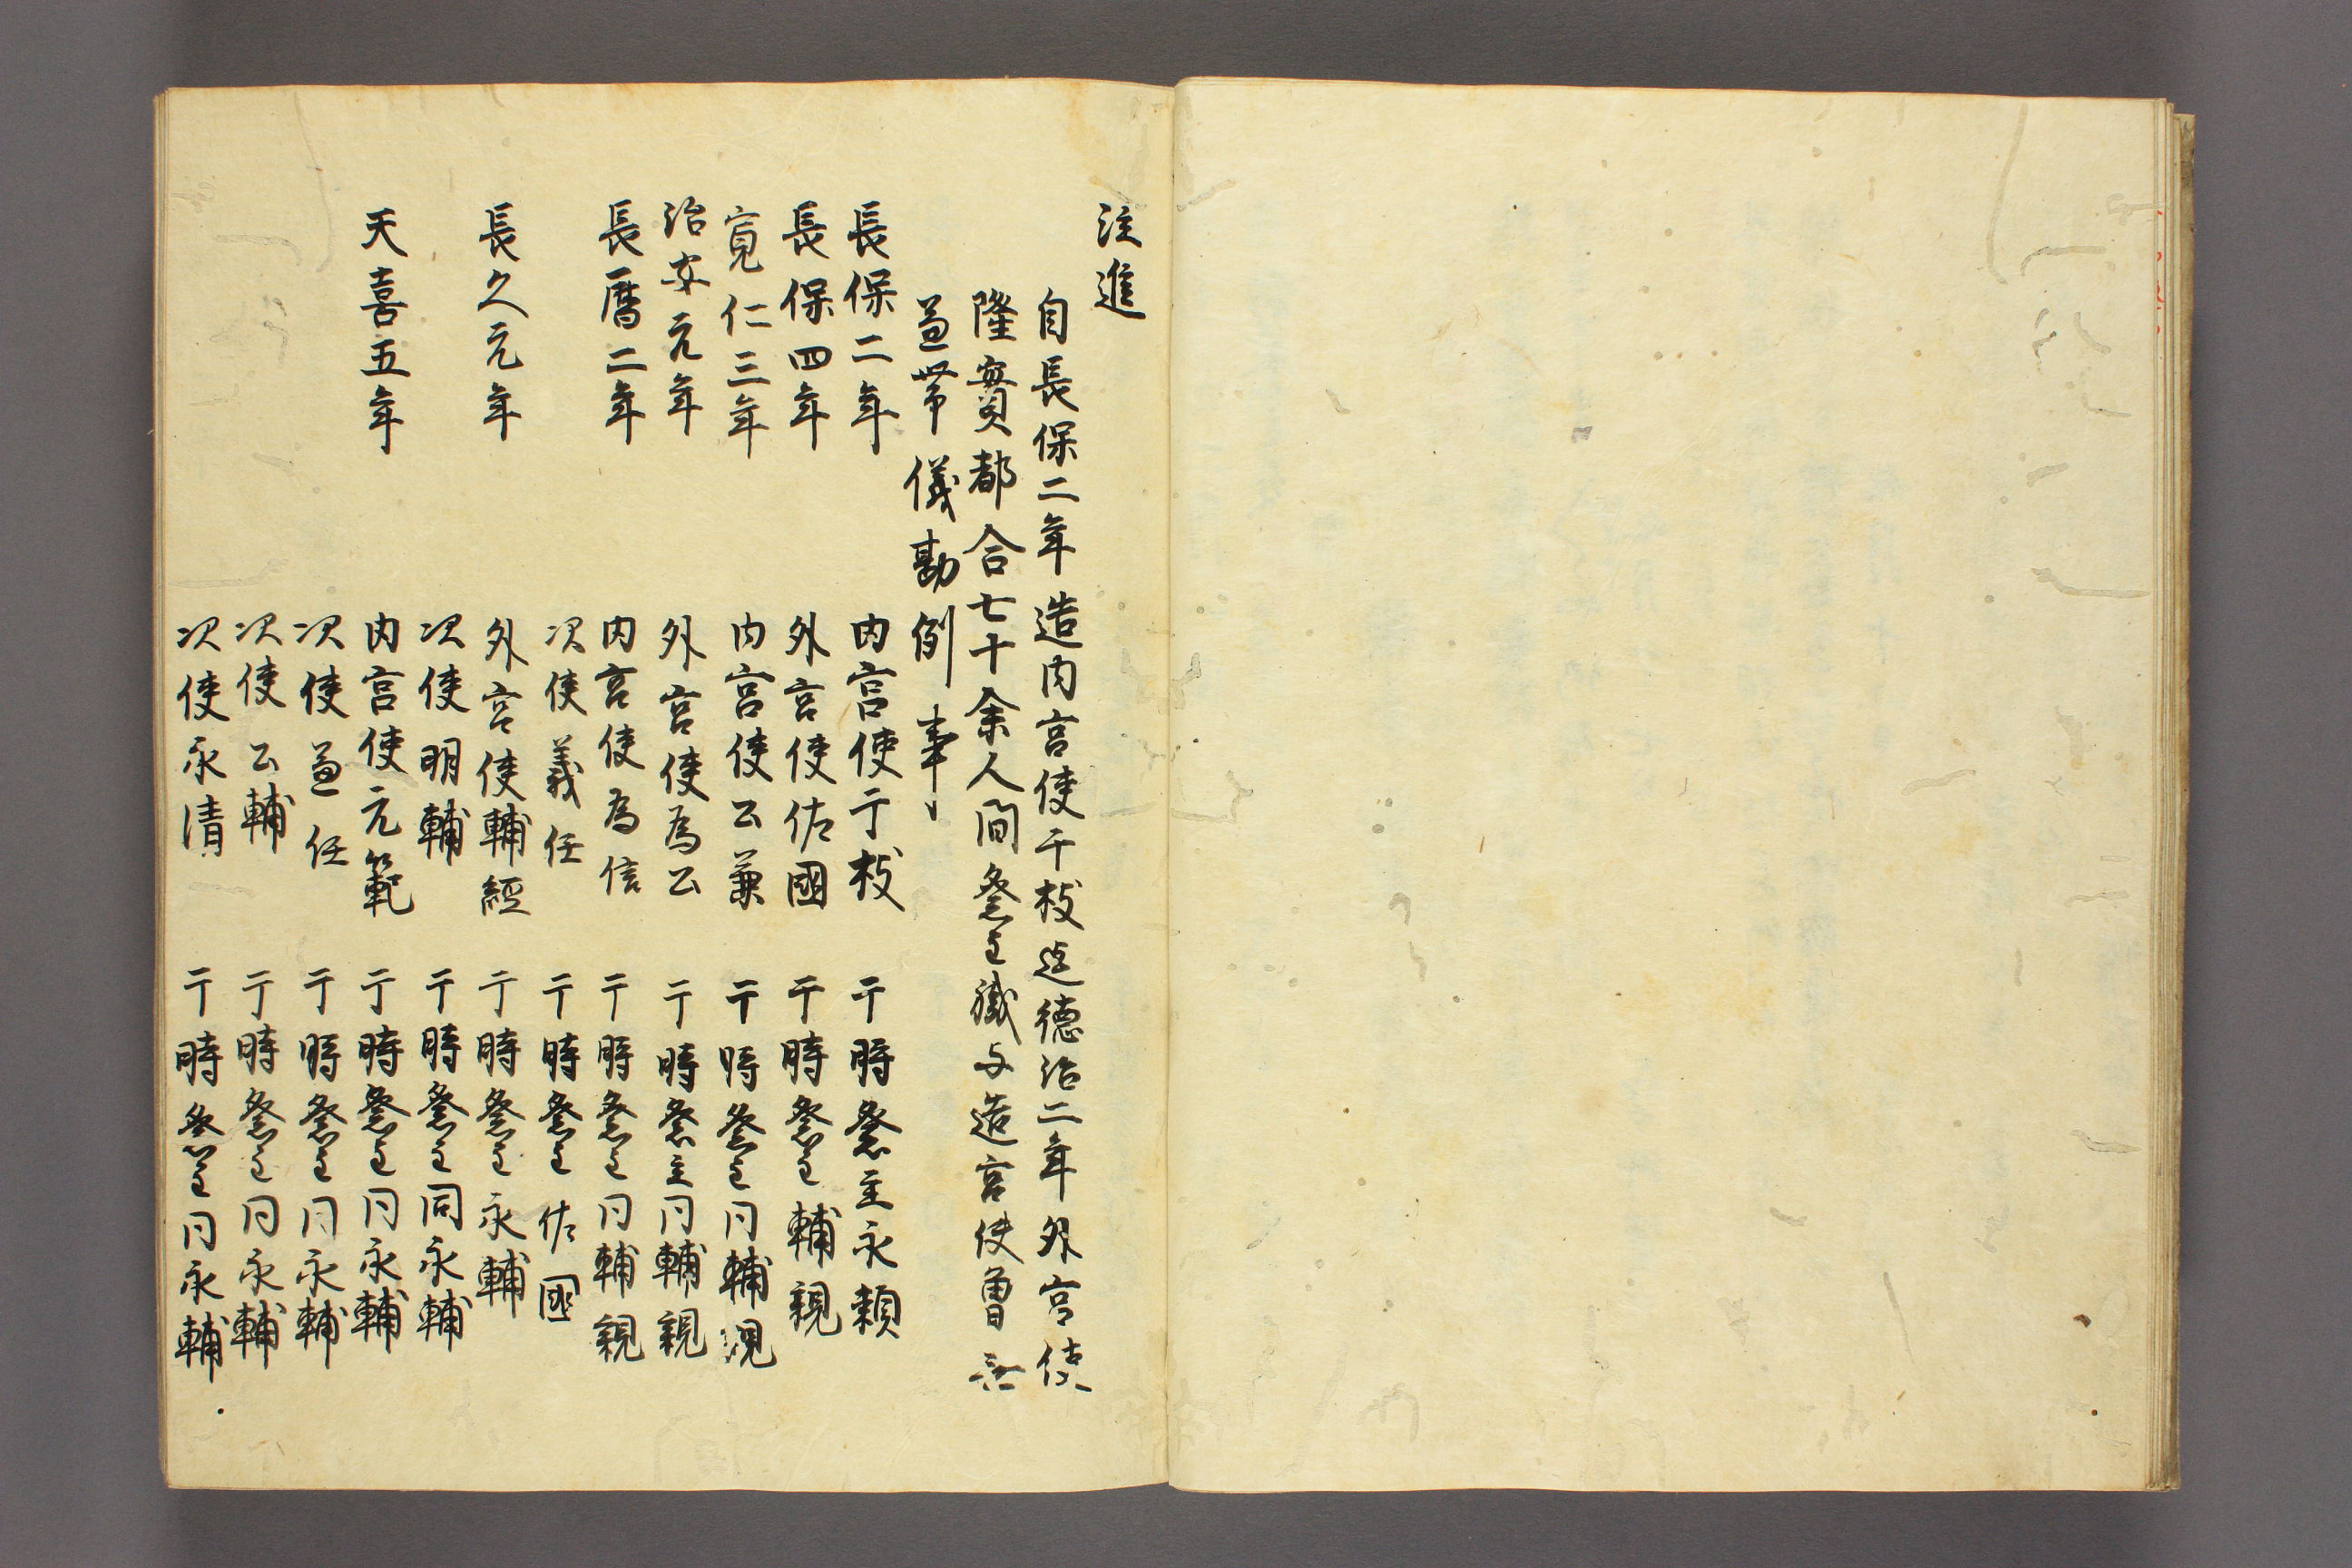 注進
自長保二年造内宮使千枝迄徳治二年外宮使
隆實都合七十余人間祭主職与造宮使曽無
兼帯儀勘例事
長保二年 内宮使千枝 于時祭主永頼
長保四年 外宮使佐國 于時祭主輔親
寛仁三年 内宮使公兼 于時祭主同輔親
治安元年 外宮使為公 于時祭主同輔親
長暦二年 内宮使為信 于時祭主同輔親
次使義任 于時祭主佐國
長久元年 外宮使輔經 于時祭主永輔
次使明輔 于時祭主同永輔
天喜五年 内宮使元範 于時祭主同永輔
次使兼任 于時祭主同永輔
次使公輔 于時祭主同永輔
次使永清 于時祭主同永輔